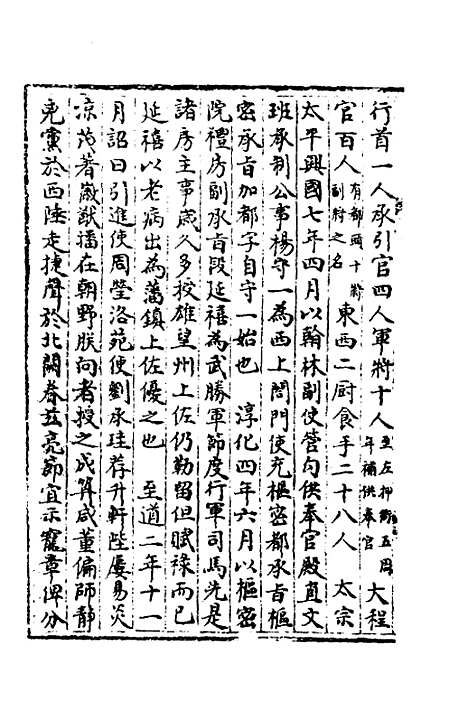 行首一人承引官四人軍將十人至左押衙五周年補供奉官大程
官百人有都頭十將副將之名東西二厨食手二十八人　太宗
太平興國七年四月以翰林副使管勾供奉官殿直文
班承制公事楊守一為西上閤門使充樞密都承旨樞
密承旨加都字自守一始也　淳化四年六月以樞密
院禮房副承旨段延禧為武勝軍節度行軍司馬先是
諸房主事歲久多授雄望州上佐仍勒留但賦祿而已
延禧以老病出為藩鎮上佐優之也　至道二年十一
月詔曰引進使周瑩洛苑使劉承珪荐升軒陛屢易炎
凉茂著嚴猷播在朝野朕向者授之成算咸董偏師靜
兇黨於西陲走捷聲於北闕眷玆亮節宜示寵章俾分